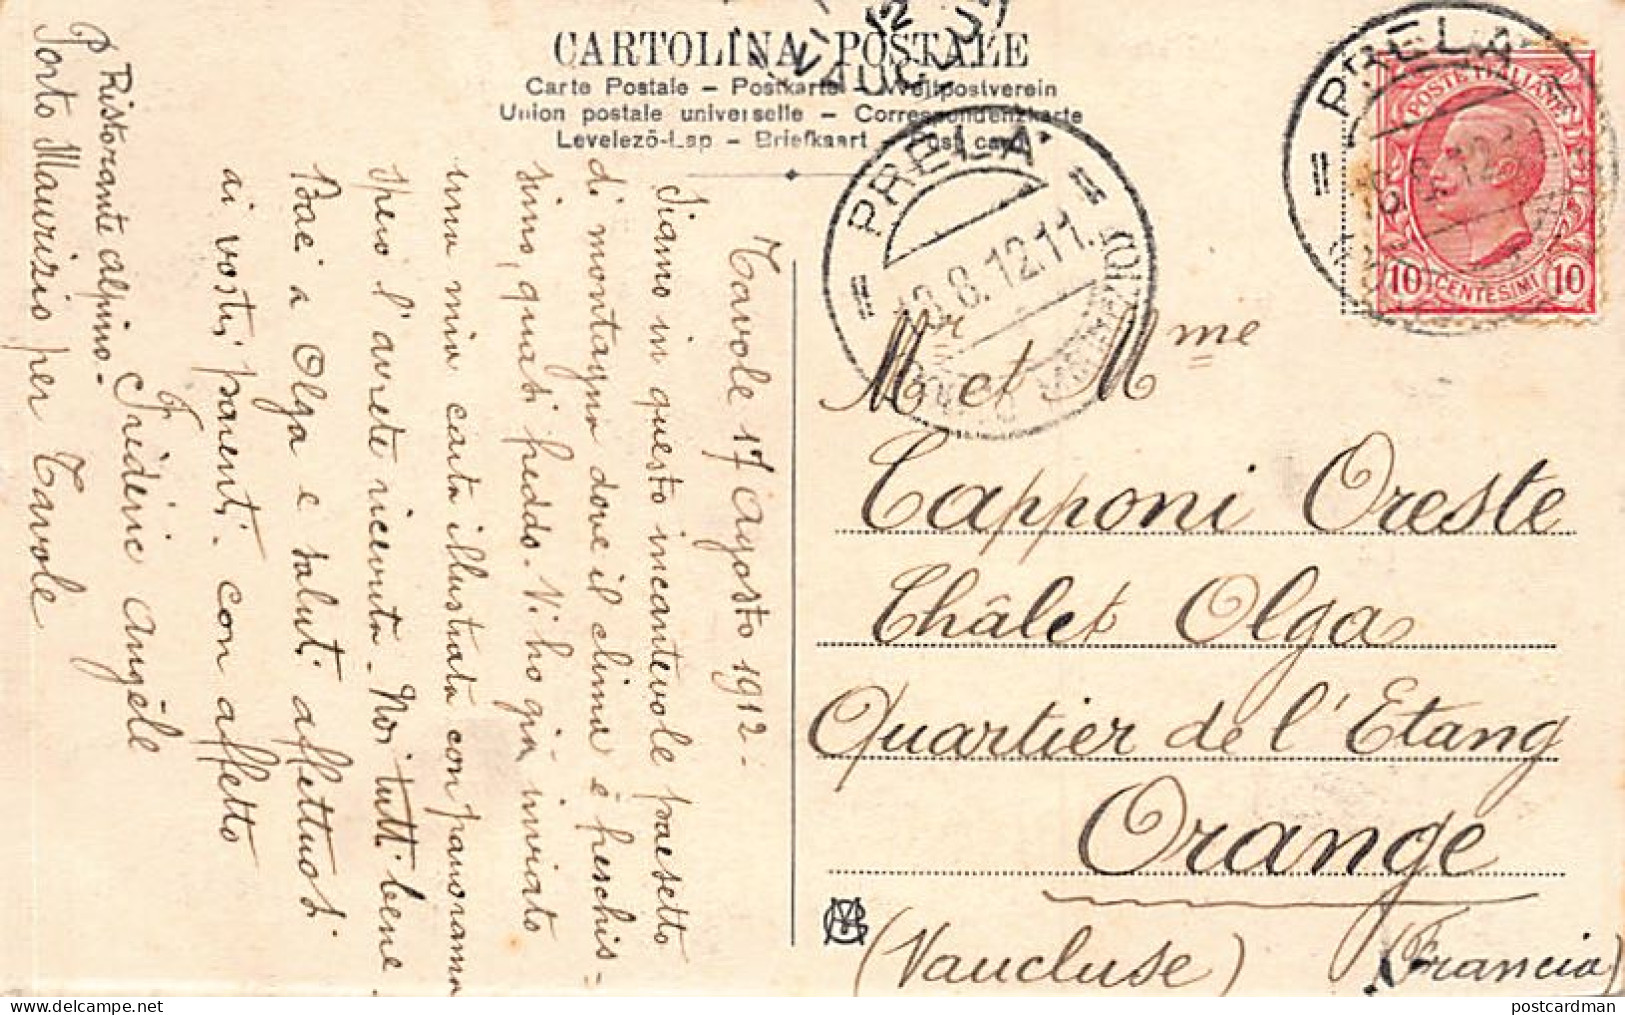 CARTOLINA POSTALE
Carte Postale – Postkarte – Weltpostverein
Union postale universelle – Correspondenzkarte
Levelező-Lap – Briefkaart – Post card
VAUCLUSE
PRELA
18.8.12.11
PORTO MAURIZIO
PRELA
POSTE ITALIANE
10 CENTESIMI 10
Tavole 17 Agosto 1912.
Siamo in questo incantevole paesetto
di montagna dove il clima è freschis-
simo, quasi freddo. Vi ho già inviato
una mia carta illustrata con panorama
spero l'avrete ricevuta. Noi tutti bene
Baci a Olga e saluti affettuosi
ai vostri parenti. Con affetto
Frédéric Angèle
Ristorante Alpino -
Porto Maurizio per Tavole
Mr et Mme
Capponi Oreste
Châlet Olga
Quartier de l'Etang
Orange
(Vaucluse) (Francia)
postcardman